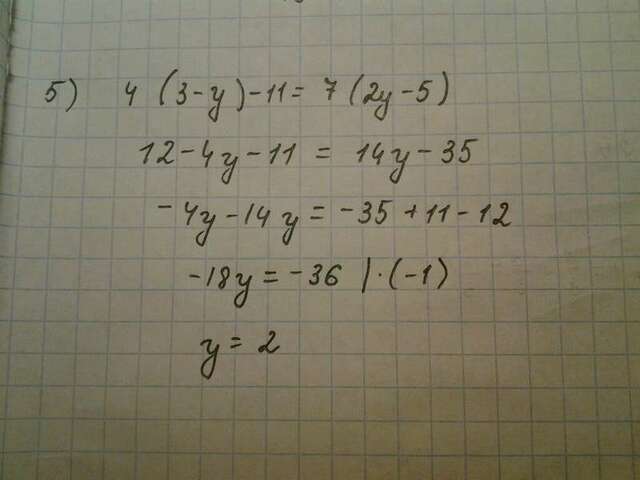 5) 4 (3-y)-11= 7 (2y-5)
12-4y-11 = 14y-35
-4y-14y = -35+11-12
-18y = -36 |·(-1)
y = 2